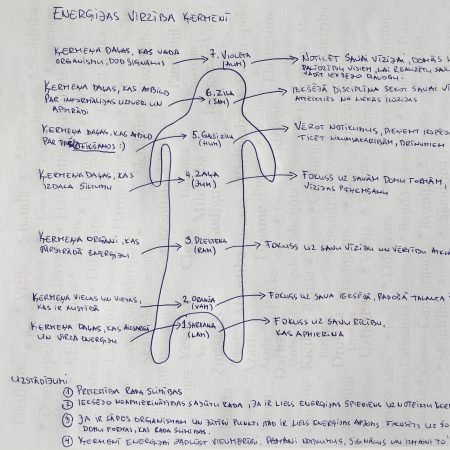 ENERGIJAS VIRZĪBA ĶERMENĪ
ĶERMEŅA DAĻAS, KAS VADA
ORGANISMU, DOD SIGNĀLUS
7. VIOLETA
(AUM)
NOTICĒT SAVAI VĪZIJAI, DOMĀS
PALĪDZĪBU VISIEM, LAI REALIZĒTU
VADĪT IEKŠĒJO DIALOGU.
ĶERMEŅA DAĻAS, KAS ATBILD
PAR INFORMĀCIJAS UZTVERI UN
APSTRĀDI
6. ZILA
(ŠAM)
IEKŠĒJĀ DISCIPLĪNA SEKOT SAVAI
ATTEIKTIES NO LIEKAS ILŪZIJAS
ĶERMEŅA DAĻAS, KAS ATBILD
PAR IETEIKŠANOS :)
5. GAIŠI ZILA
(HUM)
VĒROT NOTIKUMUS, PIEŅEMT
TICĒT VISUMSAKARĪBĀM, BRĪNUMIEM
ĶERMEŅA DAĻAS, KAS
IZDALA SILTUMU
4. ZAĻA
(JUM)
FOKUSS UZ SAVĀM DOMU FORMĀM,
VĪZIJAS PIEŅEMŠANU
ĶERMEŅA ORGĀNI, KAS
PĀRSTRĀDĀ ENERĢIJU
3. DZELTENA
(RAM)
FOKUSS UZ SAVU VĪZIJU UN VĒRTĪBU
ĶERMEŅA VIELAS UN VIETAS,
KAS IR KUSTĪBĀ
2. ORANŽA
(VAM)
FOKUSS UZ SAVA IEKŠĒJĀ, RADOŠĀ TALANTA
ĶERMEŅA DAĻAS, KAS AIZSARGĀ
UN VIRZA ENERĢIJU
1. SARKANA
(LAM)
FOKUSS UZ SAVU RĪCĪBU,
KAS APMIERINA
UZSTĀDĪJUMI
① PRETESTĪBA RADA SLIMĪBAS
② IEKŠĒJO NEAPMIERINĀTĪBAS SAJŪTU RADA, JA IR LIELS ENERĢIJAS SPIEDIENS UZ NOTEIKTU
③ JA IR SĀPES ORGANISMĀ UN JŪTĪGI PUNKTI TAD IR LIELS ENERĢIJAS APJOMS FOKUSĒTS UZ
DOMU FORMĀS, KAS RADA SLIMĪBAS.
④ ĶERMENĪ ENERĢIJAI JĀPLŪST VIENMĒRĪGI. NOTIKUMUS, SIGNĀLUS UN